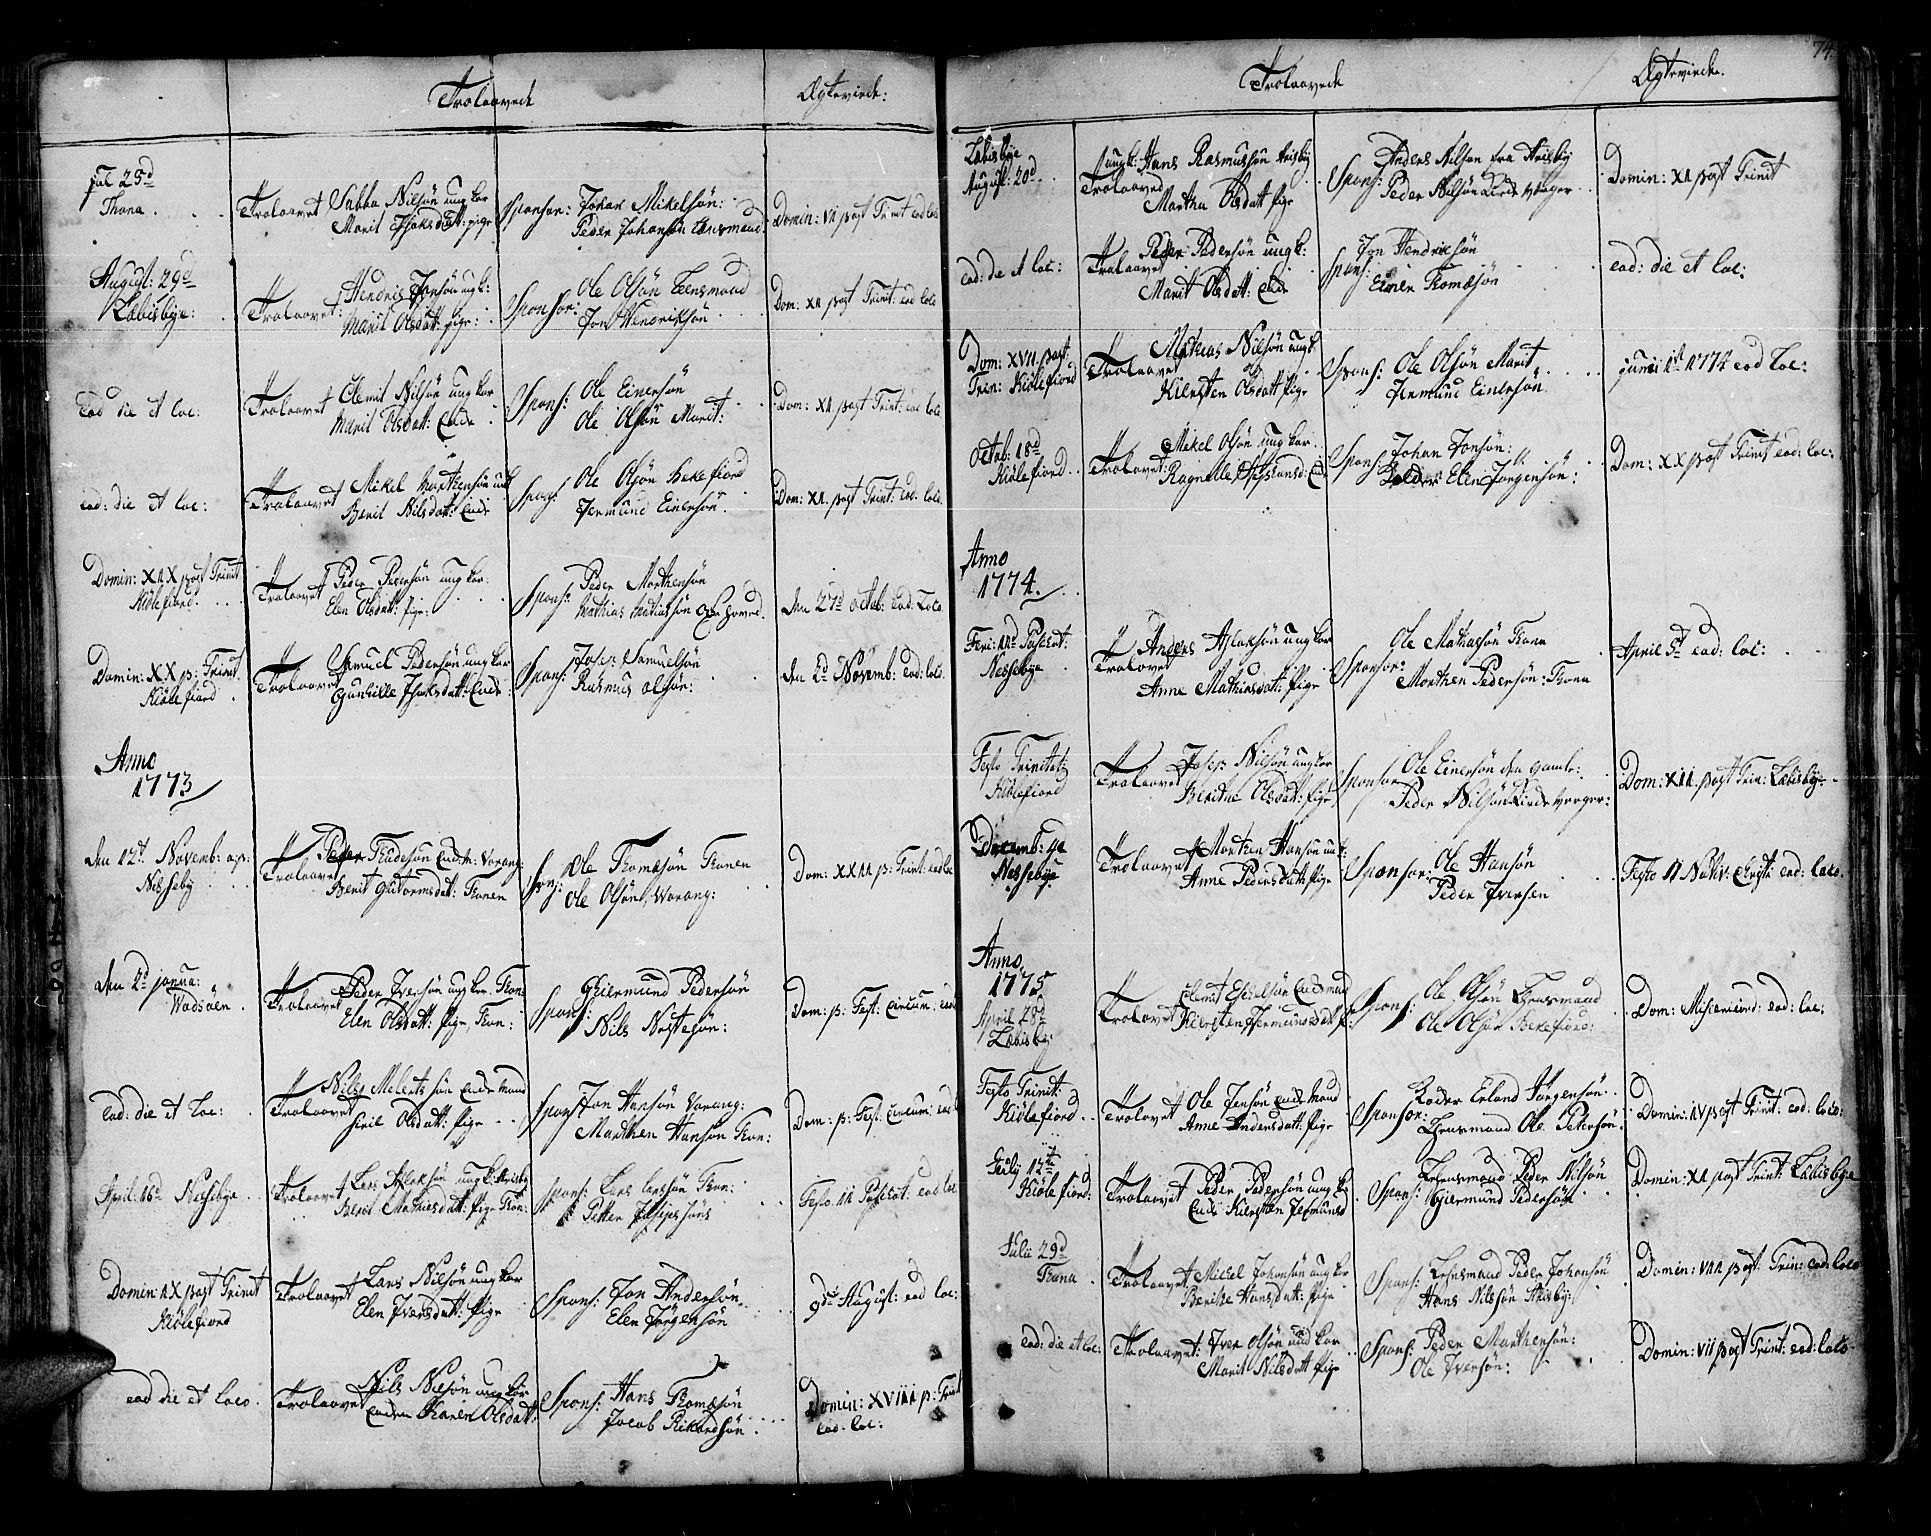 Trolovede
Ægtevirde:
Jul 25d
Thana
Trolovet Sabba Nilsøn ungkar
Marit Isaksdatt: pige
Sponsor: Johan Mikelsøn:
Peder Johansøn Lensmand
Domin: VII post Trinit eod loco
August: 29d
Læbisbye:
Trolovet: Hendrik Jonsøn ungk:
Marit Olsdatt: pige:
Sponsor: Ole Olsøn Lensmand
Jon Hendriksøn
Dom: XII post Trinit: eod loco
Eod die et loc:
Trolovet Clemit Nilsøn ungkar
Marit Olsdatt: Enke
Spons: Ole Einersøn
Ole Olsøn Marit:
Dom: XII post Trinit: eod loco
eod: die et loc:
Trolovet Mikel Morthensøn
Berit Nilsdatt: Enke
Spons: Ole Olsøn Bekefiord
Jermund Einersøn
Dom: XII post Trinit: eod: loco
Domin: XIX post Trinit
Kiølefiord
Trolovet Peder Pedersøn ungkar:
Elen Olsdatt: Pige:
Spons: Peder Morthensøn
Mathias Mathiassøn
den 27d Octob: eod: Loco
Domin: XX p: Trinit
Kiølefiord
Trolovet Samuel Pedersøn ungkar
Gunhille Isaksdatt: Enke
Spons: Josep Samuelsøn
Rasmus Olsøn:
den 2d Novemb: eod: loco
Anno
1773
den 12t Novemb:
Nesseby
Trolovet Peder Thudesøn Enkem: Varang:
Berit Guttormsdat: Thanen
Spons: Ole Thomæsøn Thanen
Ole Olsøn, Warang:
Dom: XXII p: Trinit: eod loc
den 2d janua:
Wadsøen
Trolovet Peder Iversøn ungkar Than:
Elen Olsdatt: pige, Than:
Spons: Gjermund Pedersøn
Nils Nostesøn:
Dom: p: Fest: Circum: eod
Eod: die et Loc:
Trolovet Nils Meletzsøn Enkemand
Siril Olsdatt: pige
Spons: Jon Hansøn Varang:
Marthen Hansøn Than:
Dom: p: Fest: Circum: eod
April: 16d Nessebye
Trolovet Lars Aslaksøn ungk:
Berit Mathisdatt: Pige Than:
Spons: Lars Larsøn Than:
Petter Josepssøns
Festo II Paschat: eod loc
Domin: IX post Trinit
Kiølefiord
Trolovet Lars Nilsøn ungkar
Elen Iversdatt: Pige
Spons: Jon Andersøn
Elen Jørgensøn
9de August: eod loc:
eod die et loco
Trolovet Nils Nilsøn ungkar
Enken Karen Olsdatt:
Spons: Hans Thomæsøn
Jacob Rikardsøn
Domin: XVIII p: Trinit
eod: loc:
74
Trolovede
Ægtevirde.
Læbisbye
August: 20d
Trolovet ungk: Hans Rasmussøn
Martha Olsdatt pige
Spons: Anders Nilsøn fra
Peder Nilsøn
Domin: XI post Trinit
eod: die et loc:
Trolovet Peder Pedersøn ungk:
Marit Olsdatt: Enke
Spons: Jon Hendriksøn
Einer Thomæsøn
eod: die et loc:
Dom: XVII post:
Trin: Kiølefiord
Trolovet Mathias Nilsøn ungk:
Kiersten Olsdatt Pige
Spons: Ole Olsøn Marit
Jermund Einersøn
junii 1st 1774 eod Loc:
Octob: 18d
Kiølefiord
Trolovet: Mikel Olsøn ungkar
Ragnelle
Spons Johan Jonsøn:
Elen Jørgensøn:
Dom: XX post Trinit eod: loc:
Anno
1774.
Feri: IId Paschat:
Nessebye
Trolovet Anders Aslaksøn ungkar
Anne Mathiasdatt: Pige
Sponsor: Ole Mathiassøn Thana
Morthen Pedersøn: Thana
April 5t eod: loc:
Festo Trinitat:
Kiølefiord
Trolovet Josep Nilsøn ungkar
Berithe Olsdatt: Pige
Sponsor Ole Einersøn den gamle:
Peder Nilsøn
Dom: XIII post Trin: Læbisbye
Decemb: 4d
Nessebye
Trolovet Morthen Hansøn
Anne Pedersdatt pige
Sponsor: Ole Hansøn
Peder Iversen
Festo II Nativ: Christi eod: loco.
Anno
1775
April 28d
Læbisby:
Trolovet Clemit Enkemand
Kiersten Jermundsdatt
Spons: Ole Olsøn Lensmand
Ole Olsøn Bekefiord:
Dom: Misericord: eod: loc:
Festo Trinit:
Kiølefiord
Trolovet Ole Jensøn Enkemand
Anne Andersdatt: Pige
Sponsor: Erland Jørgensøn
Lensmand Ole Petersøn:
Domin: IV post Trinit: eod: loco:
July 12te
Kiølefiord:
Trolovet Peder Pedersøn ungk:
Enke Kiersten Jermunsd
Spons: Lensmand Peder Nilsøn
Gjermund Pedersøn
Domin: XI post Trinit: Læbisbye
Julii 29d
Thana
Trolovet Mikel Johansøn ungkar
Berithe Hansdatt: Pige
Spons: Lensmand Peder Johansøn
Hans Nilsøn
Domin: VII post: Trin: eod: loco
eod: die et loc:
Trolovet: Iver Olsøn ungkar
Marit Nilsdatt Pige
Spons: Peder Marthensøn:
Ole Iversøn:
Domin: VII post Trinit: eod: loco